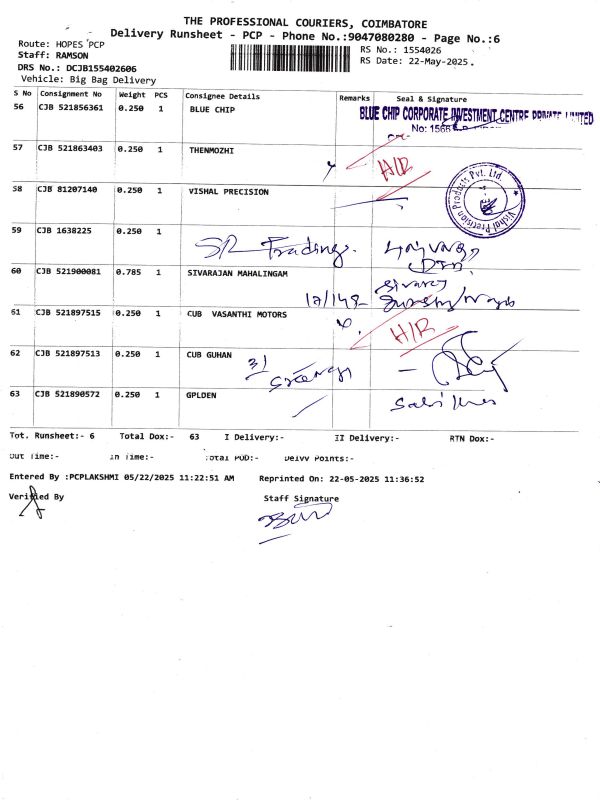 THE PROFESSIONAL COURIERS, COIMBATORE
Delivery Runsheet - PCP - Phone No.:9047080280 - Page No.:6
Route: HOPES PCP
Staff: RAMSON
DRS No.: DCJB155402606
Vehicle: Big Bag Delivery
RS No.: 1554026
RS Date: 22-May-2025.
S No Consignment No Weight PCS Consignee Details Remarks Seal & Signature
56 CJB 521856361 0.250 1 BLUE CHIP
BLUE CHIP CORPORATE INVESTMENT CENTRE PRIVATE LIMITED
No: 156
57 CJB 521863403 0.250 1 THENMOZHI
H/R
58 CJB 81207140 0.250 1 VISHAL PRECISION
Vishal Precision Products Pvt. Ltd.
59 CJB 1638225 0.250 1
SR Tradings.
60 CJB 521900081 0.785 1 SIVARAJAN MAHALINGAM
61 CJB 521897515 0.250 1 CUB VASANTHI MOTORS
H/R
62 CJB 521897513 0.250 1 CUB GUHAN
63 CJB 521890572 0.250 1 GPLDEN
Tot. Runsheet:- 6 Total Dox:- 63 I Delivery:- II Delivery:- RTN Dox:-
Out Time:- In Time:- Total POD:- Delvv Points:-
Entered By :PCPLAKSHMI 05/22/2025 11:22:51 AM Reprinted On: 22-05-2025 11:36:52
Verified By Staff Signature